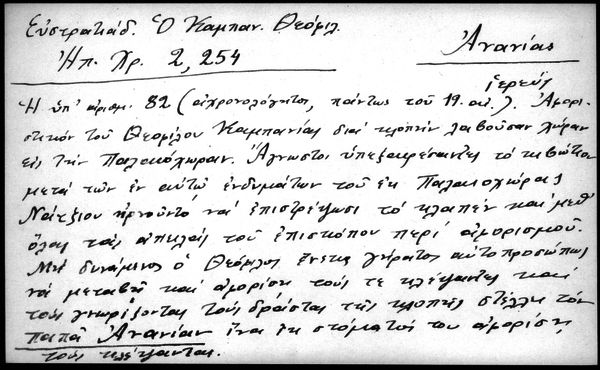 Εὐστρατιάδ. Ὁ Καμπαν. Θεόφιλ.
Ἠπ. Χρ. 2, 254
Ἀνανίας
ἱερεύς
Ἡ ὑπ' ἀριθμ. 82 (ἀχρονολόγητος, πάντως τοῦ 19. αἰ.). Ἀφορι-
στικόν τοῦ Θεοφίλου Καμπανίας διά κλοπήν λαβοῦσαν χώραν
εἰς τήν Παλαιοχώραν. Ἄγνωστοι ὑπεξαιρέσαντες τό κιβώτιον
μετά τῶν ἐν αὐτῷ ἐνδυμάτων τοῦ ἐκ Παλαιοχώρας
Νάτζιου ἠρνοῦντο νά ἐπιστρέψωσι τό κλαπέν καί μεθ'
ὅλας τάς ἀπειλάς τοῦ ἐπισκόπου περί ἀφορισμοῦ.
Μή δυνάμενος ὁ Θεόφιλος ἕνεκα γήρατος αὐτοπροσώπως
νά μεταβῇ καί ἀφορίσῃ τούς τε κλέψαντες καί
τούς γνωρίζοντας τούς δράστας τῆς κλοπῆς στέλλει τόν
παπᾶ Ἀνανίαν ἵνα ἐκ στόματός του ἀφορίσῃ
τούς κλέψαντας.